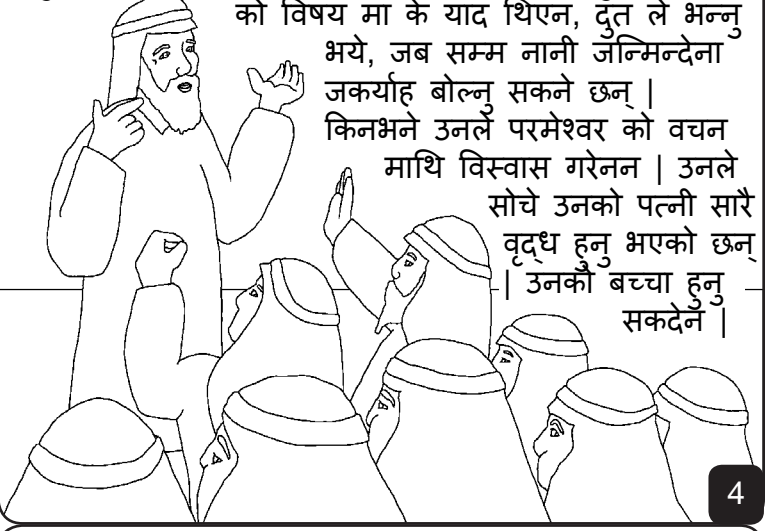 को विषय मा के याद थिएन, दुत ले भन्नु
भये, जब सम्म नानी जन्मिन्देना
जकर्याह बोल्नु सकने छन् |
किनभने उनले परमेश्वर को वचन
माथि विस्वास गरेनन | उनले
सोचे उनको पत्नी सारै
वृद्ध हुनु भएको छन्
| उनको बच्चा हुनु
सकदेन |
4